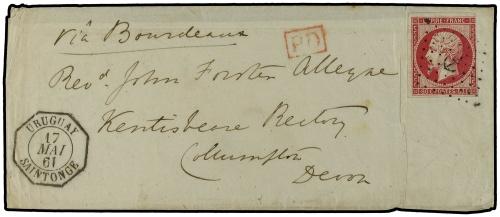 viâ Bourdeaux
PD
EMPIRE FRANC.
Rev.d John Forster Alleyne
Kentisbeare Rectory
Collumpton
Devon
URUGUAY
17
MAI
61
SAINTONGE